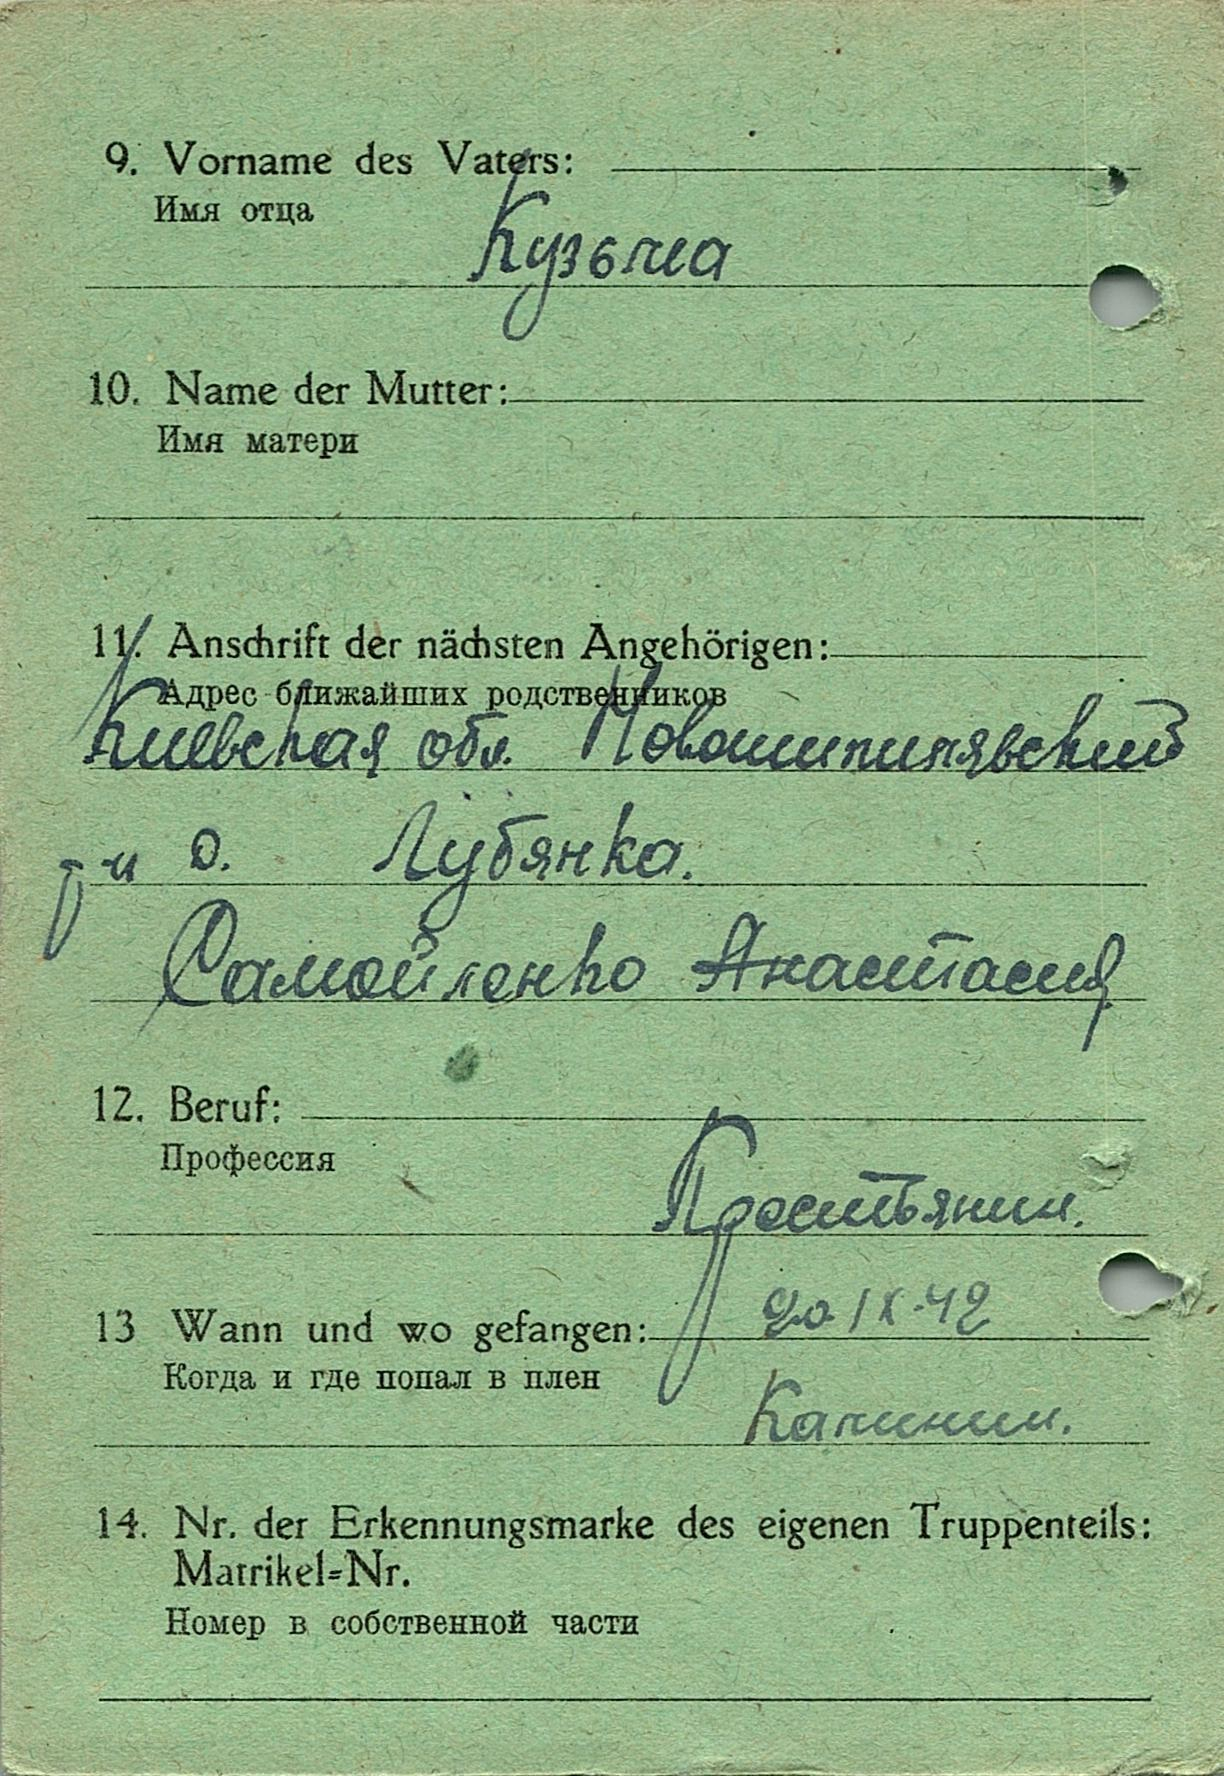 9. Vorname des Vaters:
Имя отца
Кузьма
10. Name der Mutter:
Имя матери
11. Anschrift der nächsten Angehörigen:
Адрес ближайших родственников
Киевская обл. Новошипилявский
р-н с. Лубянка.
Самойленко Анастасия
12. Beruf:
Профессия
Крестьянин.
13 Wann und wo gefangen:
IX.42
Когда и где попал в плен
Калинин.
14. Nr. der Erkennungsmarke des eigenen Truppenteils:
Matrikel=Nr.
Номер в собственной части